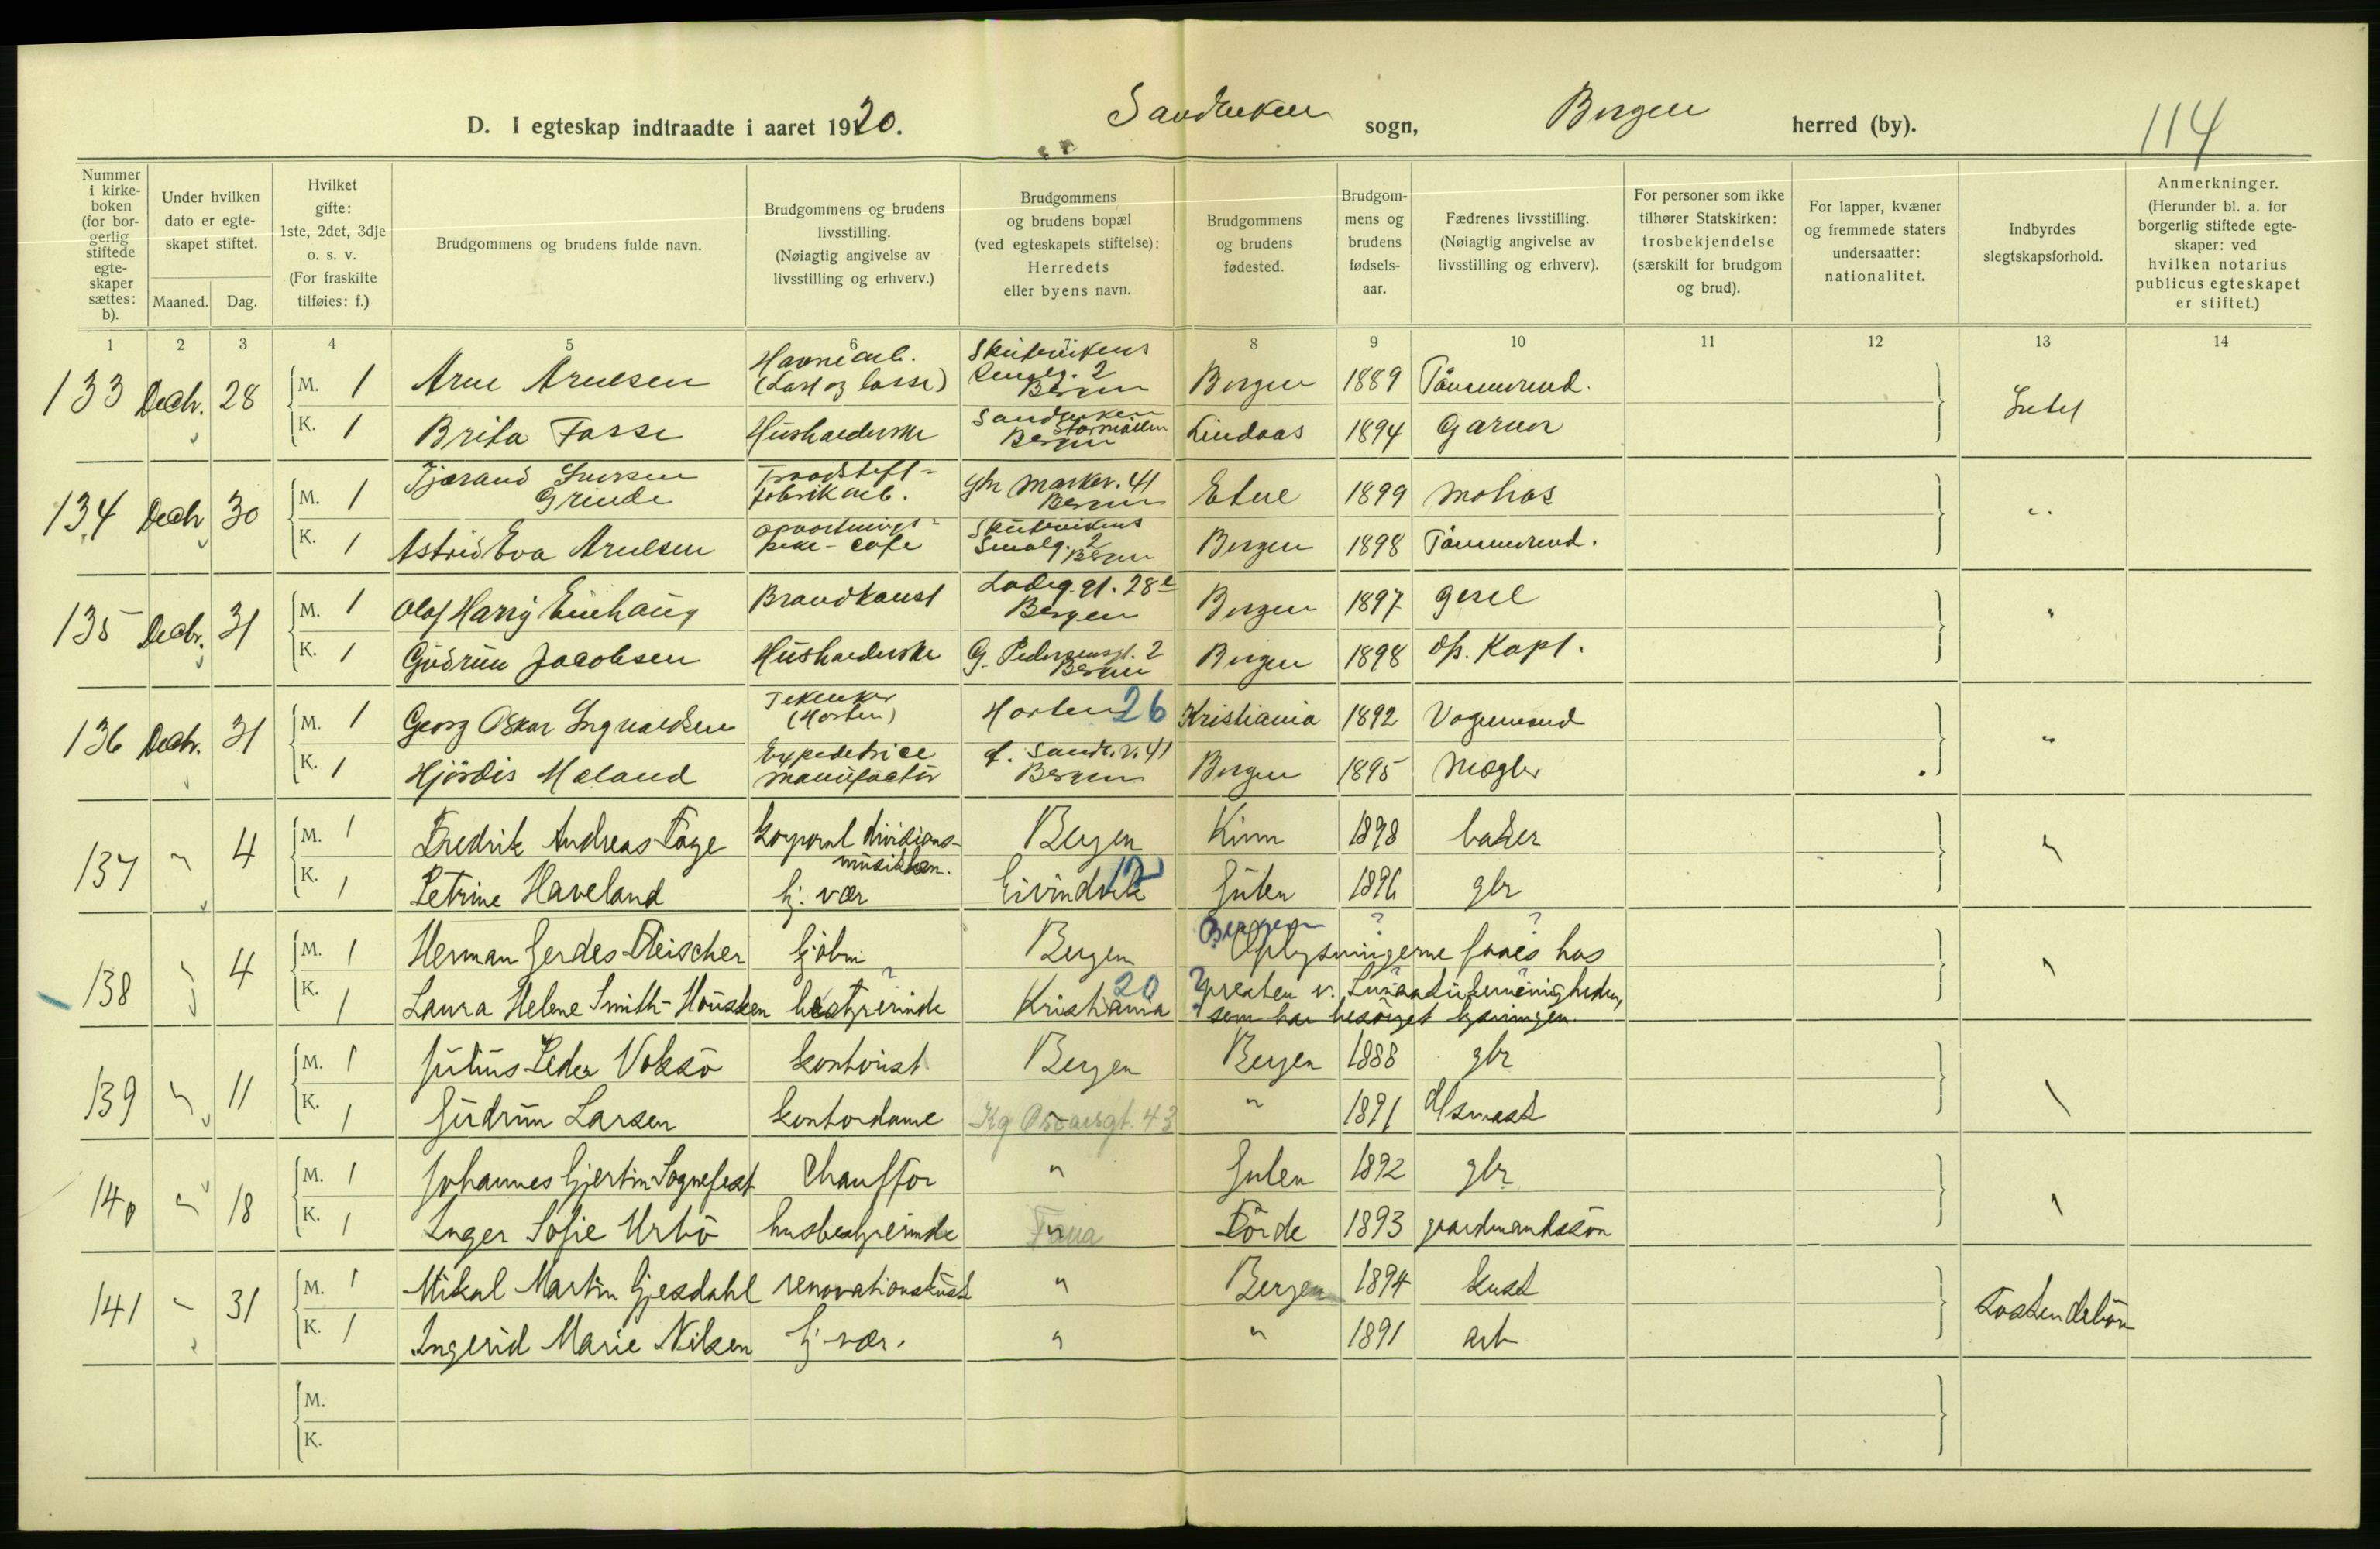 D. I egteskap indtraadte i aaret 1920. Sandviken sogn, Bergen herred (by). 114
Nummer i kirkeboken (for borgerlig stiftede egteskaper sættes: b).
Under hvilken dato er egteskapet stiftet.
Maaned. Dag.
Hvilket gifte: 1ste, 2det, 3dje o. s. v. (For fraskilte tilføies: f.)
Brudgommens og brudens fulde navn.
Brudgommens og brudens livsstilling. (Nøiagtig angivelse av livsstilling og erhverv.)
Brudgommens og brudens bopæl (ved egteskapets stiftelse): Herredets eller byens navn.
Brudgommens og brudens fødested.
Brudgommens og brudens fødselsaar.
Fædrenes livsstilling. (Nøiagtig angivelse av livsstilling og erhverv).
For personer som ikke tilhører Statskirken: trosbekjendelse (særskilt for brudgom og brud).
For lapper, kvæner og fremmede staters undersaatter: nationalitet.
Indbyrdes slegtskapsforhold.
Anmerkninger. (Herunder bl. a. for borgerlig stiftede egteskaper: ved hvilken notarius publicus egteskapet er stiftet.)
1 2 3 4 5 6 7 8 9 10 11 12 13 14
133 Decbr. 28 M. 1 Arne Arnesen Havnearb. (Last og losse) Skutevikens Smalg. 2 Bergen Bergen 1889 Tømmermd. Intet
K. 1 Brita Fosse Husholderske Sandviken Stormøllen Bergen Lindaas 1894 Garver
134 Decbr 30 M. 1 Tjerand Iversen Grinde Traadstiftfabrikarb. Ytr Markev. 41 Bergen Etne 1899 Mohas "
K. 1 Astrid Eva Arnesen Opvartningspike - Cafe Skutevikens Smalg. 2 Bergen Bergen 1898 Tømmermd.
135 Decbr. 31 M. 1 Olaf Harry Einhaug Brandkonst Ladeg.gt. 28 Bergen Bergen 1897 Gesel "
K. 1 Gudrun Jacobsen Husholderske G. Pedersensgt. 2 Bergen Bergen 1898 Sk. Kapt.
136 Decbr. 31 M. 1 Georg Oskar Ingvaldsen Tekniker (Horten) Horten 26 Kristiania 1892 Vognmand "
K. 1 Hjördis Meland Expeditrice Manufactur Sandv.v. 41 Bergen Bergen 1895 Mægler
137 " 4 M. 1 Fredrik Andreas Tage korporal divisionsmusikken. Bergen Kinn 1898 baker "
K. 1 Petrine Haveland hj. vær Eivindvik 12 Gulen 1896 gbr
138 " 4 M. 1 Herman Gerdes Fleischer kjøbm Bergen Bergen ? ? Oplysningerne faaes hos "
K. 1 Laura Helene Smith-Housken bestyrerinde ? Kristiania 20 ? presten v. som har besørget lysningen.
139 " 11 M. 1 Julius Peder Voksö kontorist Bergen Bergen 1888 gbr "
K. 1 Gudrun Larsen kontordame Kg Oscarsgt. 43 " 1891
140 " 18 M. 1 Johannes Gjertin Sognefest Chauffør " Gulen 1892 gbr "
K. 1 Inger Sofie Urbö husbestyrerinde Fana " Förde 1893 gaardmandssön
141 " 31 M. 1 Mikal Martin Gjesdahl renovationskusk " Bergen 1894 kusk Søskendebörn
K. 1 Ingerid Marie Nilsen hj. vær. " " 1891 arb
M.
K.